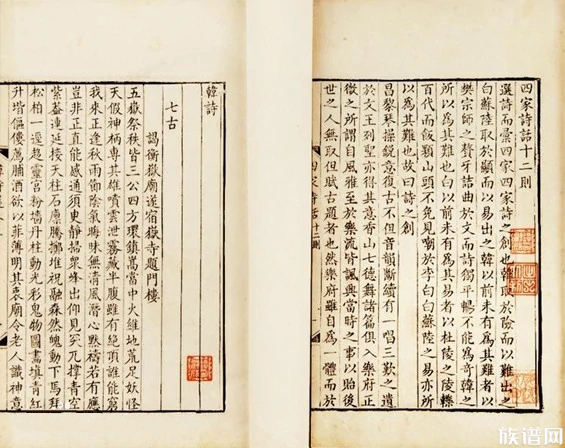 四家詩話十二則
選詩而彙四家四家詩之創也韓取於險而以難出之
白蘇陸取於顯而以易出之韓以前未有為其難者以
樊宗師之聱牙詰曲於文而詩獨平暢不能為奇韓之
所以為其難也白以前未有為其易者以杜陵之陵轢
百代而飯顆山頭不免見嘲於李白白蘇陸之易亦所
以為其難也故曰詩之創
昌黎琴操銳意復古不但音韻斷續有一唱三歎之遺
於文王列聖亦得其意香山七德舞諸篇俱入樂府正
嶽之所謂自風雅至於樂流皆諷興當時之事以貽後
世之人無取但賦古題者也然樂府雖自為一體而於
四家詩話 十二則
韓詩
七古
謁衡嶽廟遂宿嶽寺題門樓
五嶽祭秩皆三公四方環鎮嵩當中火維地荒足妖怪
天假神柄專其雄噴雲泄霧藏半腹雖有絕頂誰能窮
我來正逢秋雨節陰氣晦昧無清風潛心默禱若有應
豈非正直能感通須臾靜掃衆峰出仰見突兀撐青空
紫蓋連延接天柱石廩騰擲堆祝融森然魄動下馬拜
松柏一逕趨靈宮粉牆丹柱動光彩鬼物圖畫填青紅
升堦傴僂薦脯酒欲以菲薄明其衷廟令老人識神意
族谱网